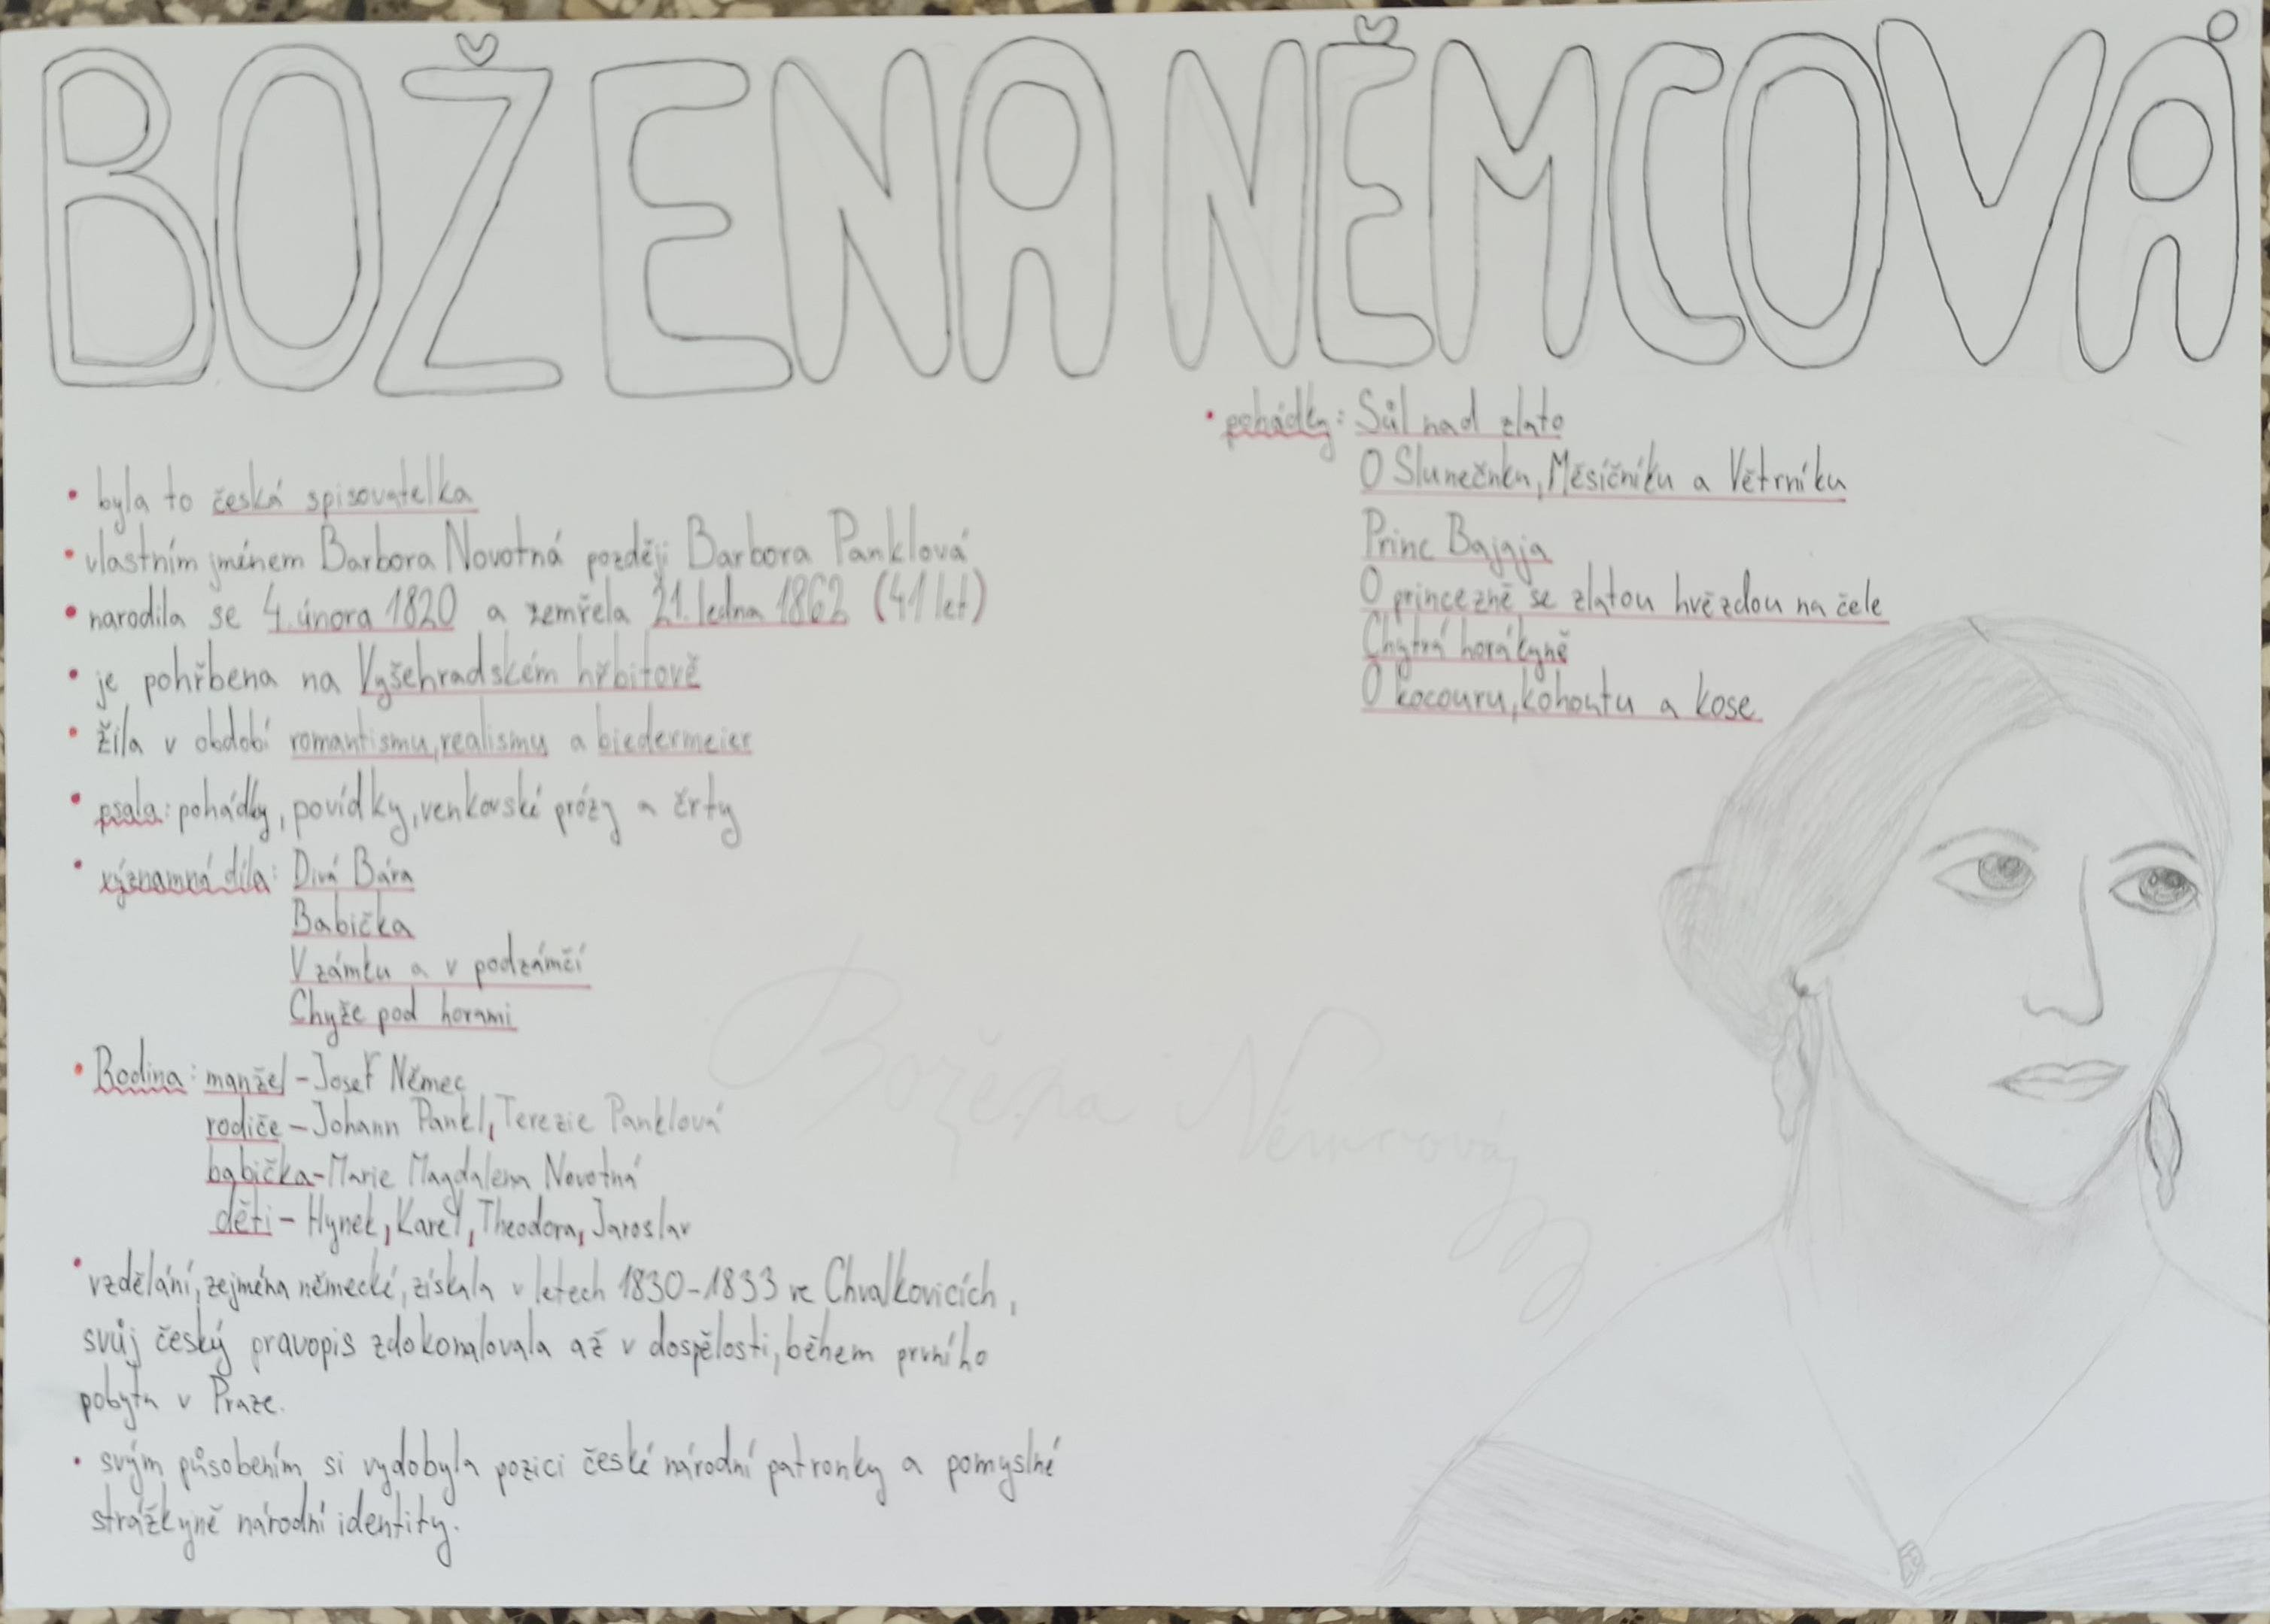 BOŽENA NĚMCOVÁ
• byla to česká spisovatelka
• vlastním jménem Barbora Novotná později Barbora Panklová
• narodila se 4. února 1820 a zemřela 21. ledna 1862 (41 let)
• je pohřbena na Vyšehradském hřbitově
• žila v období romantismu, realismu a biedermeier
• psala: pohádky, povídky, venkovské prózy a črty
• významná díla: Divá Bára
Babička
V zámku a v podzámčí
Chyže pod horami
• Rodina: manžel - Josef Němec
rodiče - Johann Pankl, Terezie Panklová
babička - Marie Magdalena Novotná
děti - Hynek, Karel, Theodora, Jaroslav
• vzdělání, zejména německé, získala v letech 1830-1833 ve Chvalkovicích,
svůj český pravopis zdokonalovala až v dospělosti, během prvního
pobytu v Praze.
• svým působením si vydobyla pozici české národní patronky a pomyslné
strážkyně národní identity.
• pohádky: Sůl nad zlato
O Slunečnku, Měsíčníku a Větrníku
Princ Bajaja
O princezně se zlatou hvězdou na čele
Chytrá horákyně
O kocouru, kohoutu a kose
Božena Němcová